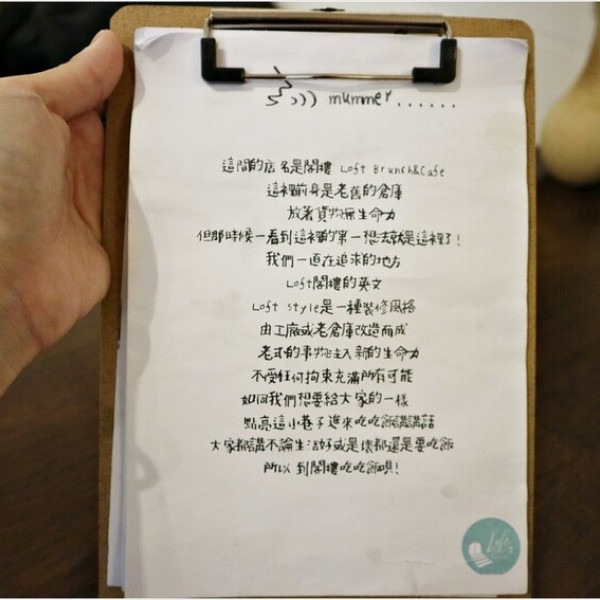 ))) mummer......
這間的店名是閣樓 Loft Brunch&Cafe
這裡前身是老舊的倉庫
放著貨物無生命力
但那時候一看到這裡的第一想法就是這裡了!
我們一直在追求的地方
Loft閣樓的英文
Loft style是一種裝修風格
由工廠或老倉庫改造而成
老式的事物注入新的生命力
不受任何拘束充滿所有可能
如同我們想要給大家的一樣
點亮這小巷子進來吃吃飯講講話
大家都講不論生活好或是壞都還是要吃飯
所以 到閣樓吃吃飯唄!
Loft